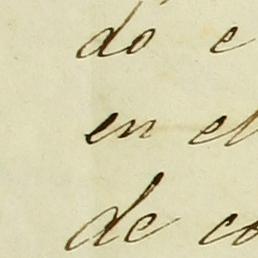 do e
en el
de co